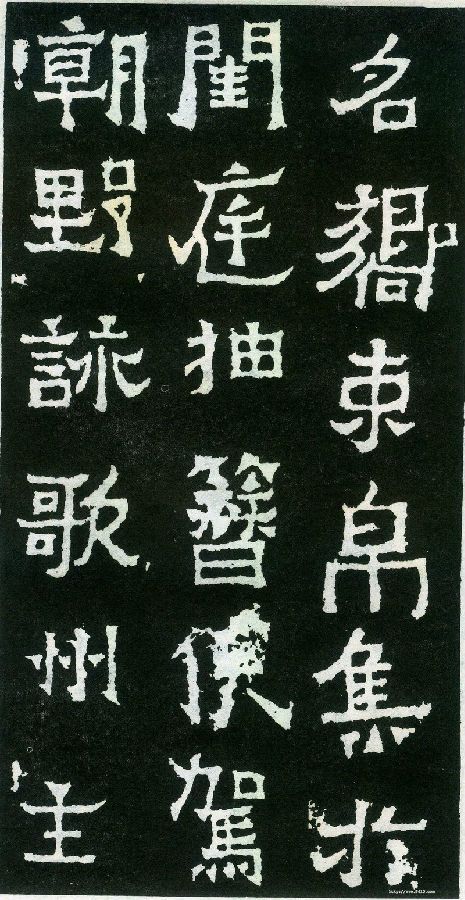 名嚮束帛集於
閨庭抽簪俟駕
朝野詠歌州主